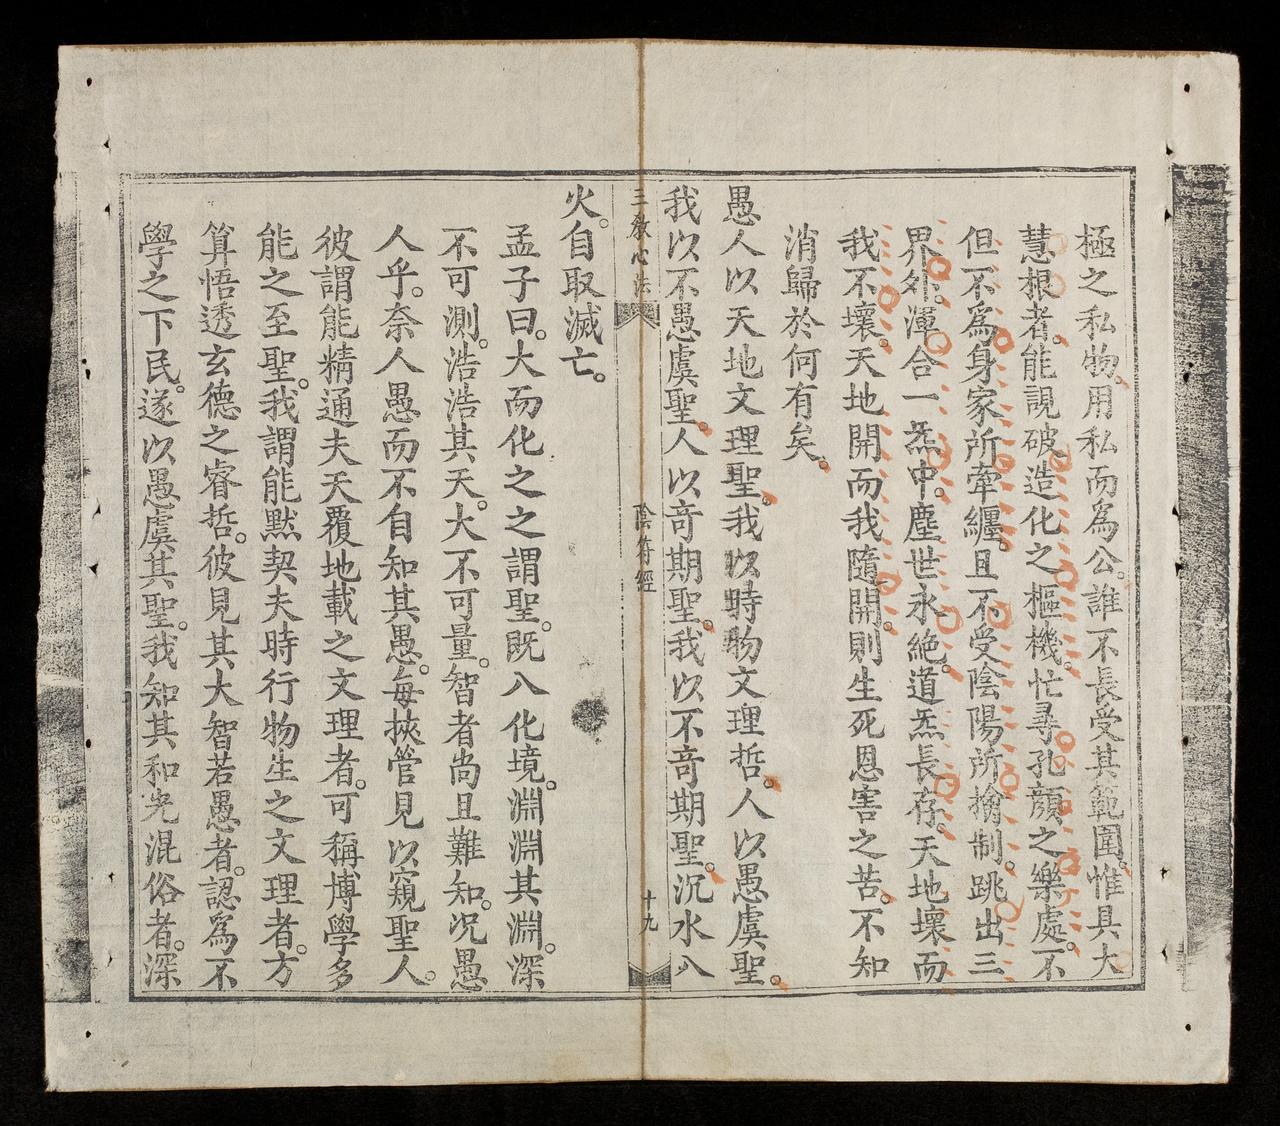 極之私物。用私而爲公。誰不長受其範圍。惟具大
慧根者。能覷破造化之樞機。忙尋孔顏之樂處。不
但不爲身家所牽纏。且不受陰陽所擒制。跳出三
界外。渾合一炁中。塵世永絕。道炁長存。天地壞而
我不壞。天地開而我隨開。則生死恩害之苦。不知
消歸於何有矣。
愚人以天地文理聖。我以時物文理哲。人以愚虞聖。
我以不愚虞聖。人以奇期聖。我以不奇期聖。沉水入
三教心法
陰符經
十九
火。自取滅亡。
孟子曰。大而化之之謂聖。既入化境。淵淵其淵。深
不可測。浩浩其天。大不可量。智者尚且難知。况愚
人乎。奈人愚而不自知其愚。每挾管見以窺聖人。
彼謂能精通夫天覆地載之文理者。可稱博學多
能之至聖。我謂能默契夫時行物生之文理者。方
算悟透玄德之睿哲。彼見其大智若愚者。認爲不
學之下民。遂以愚虞其聖。我知其和光混俗者。深